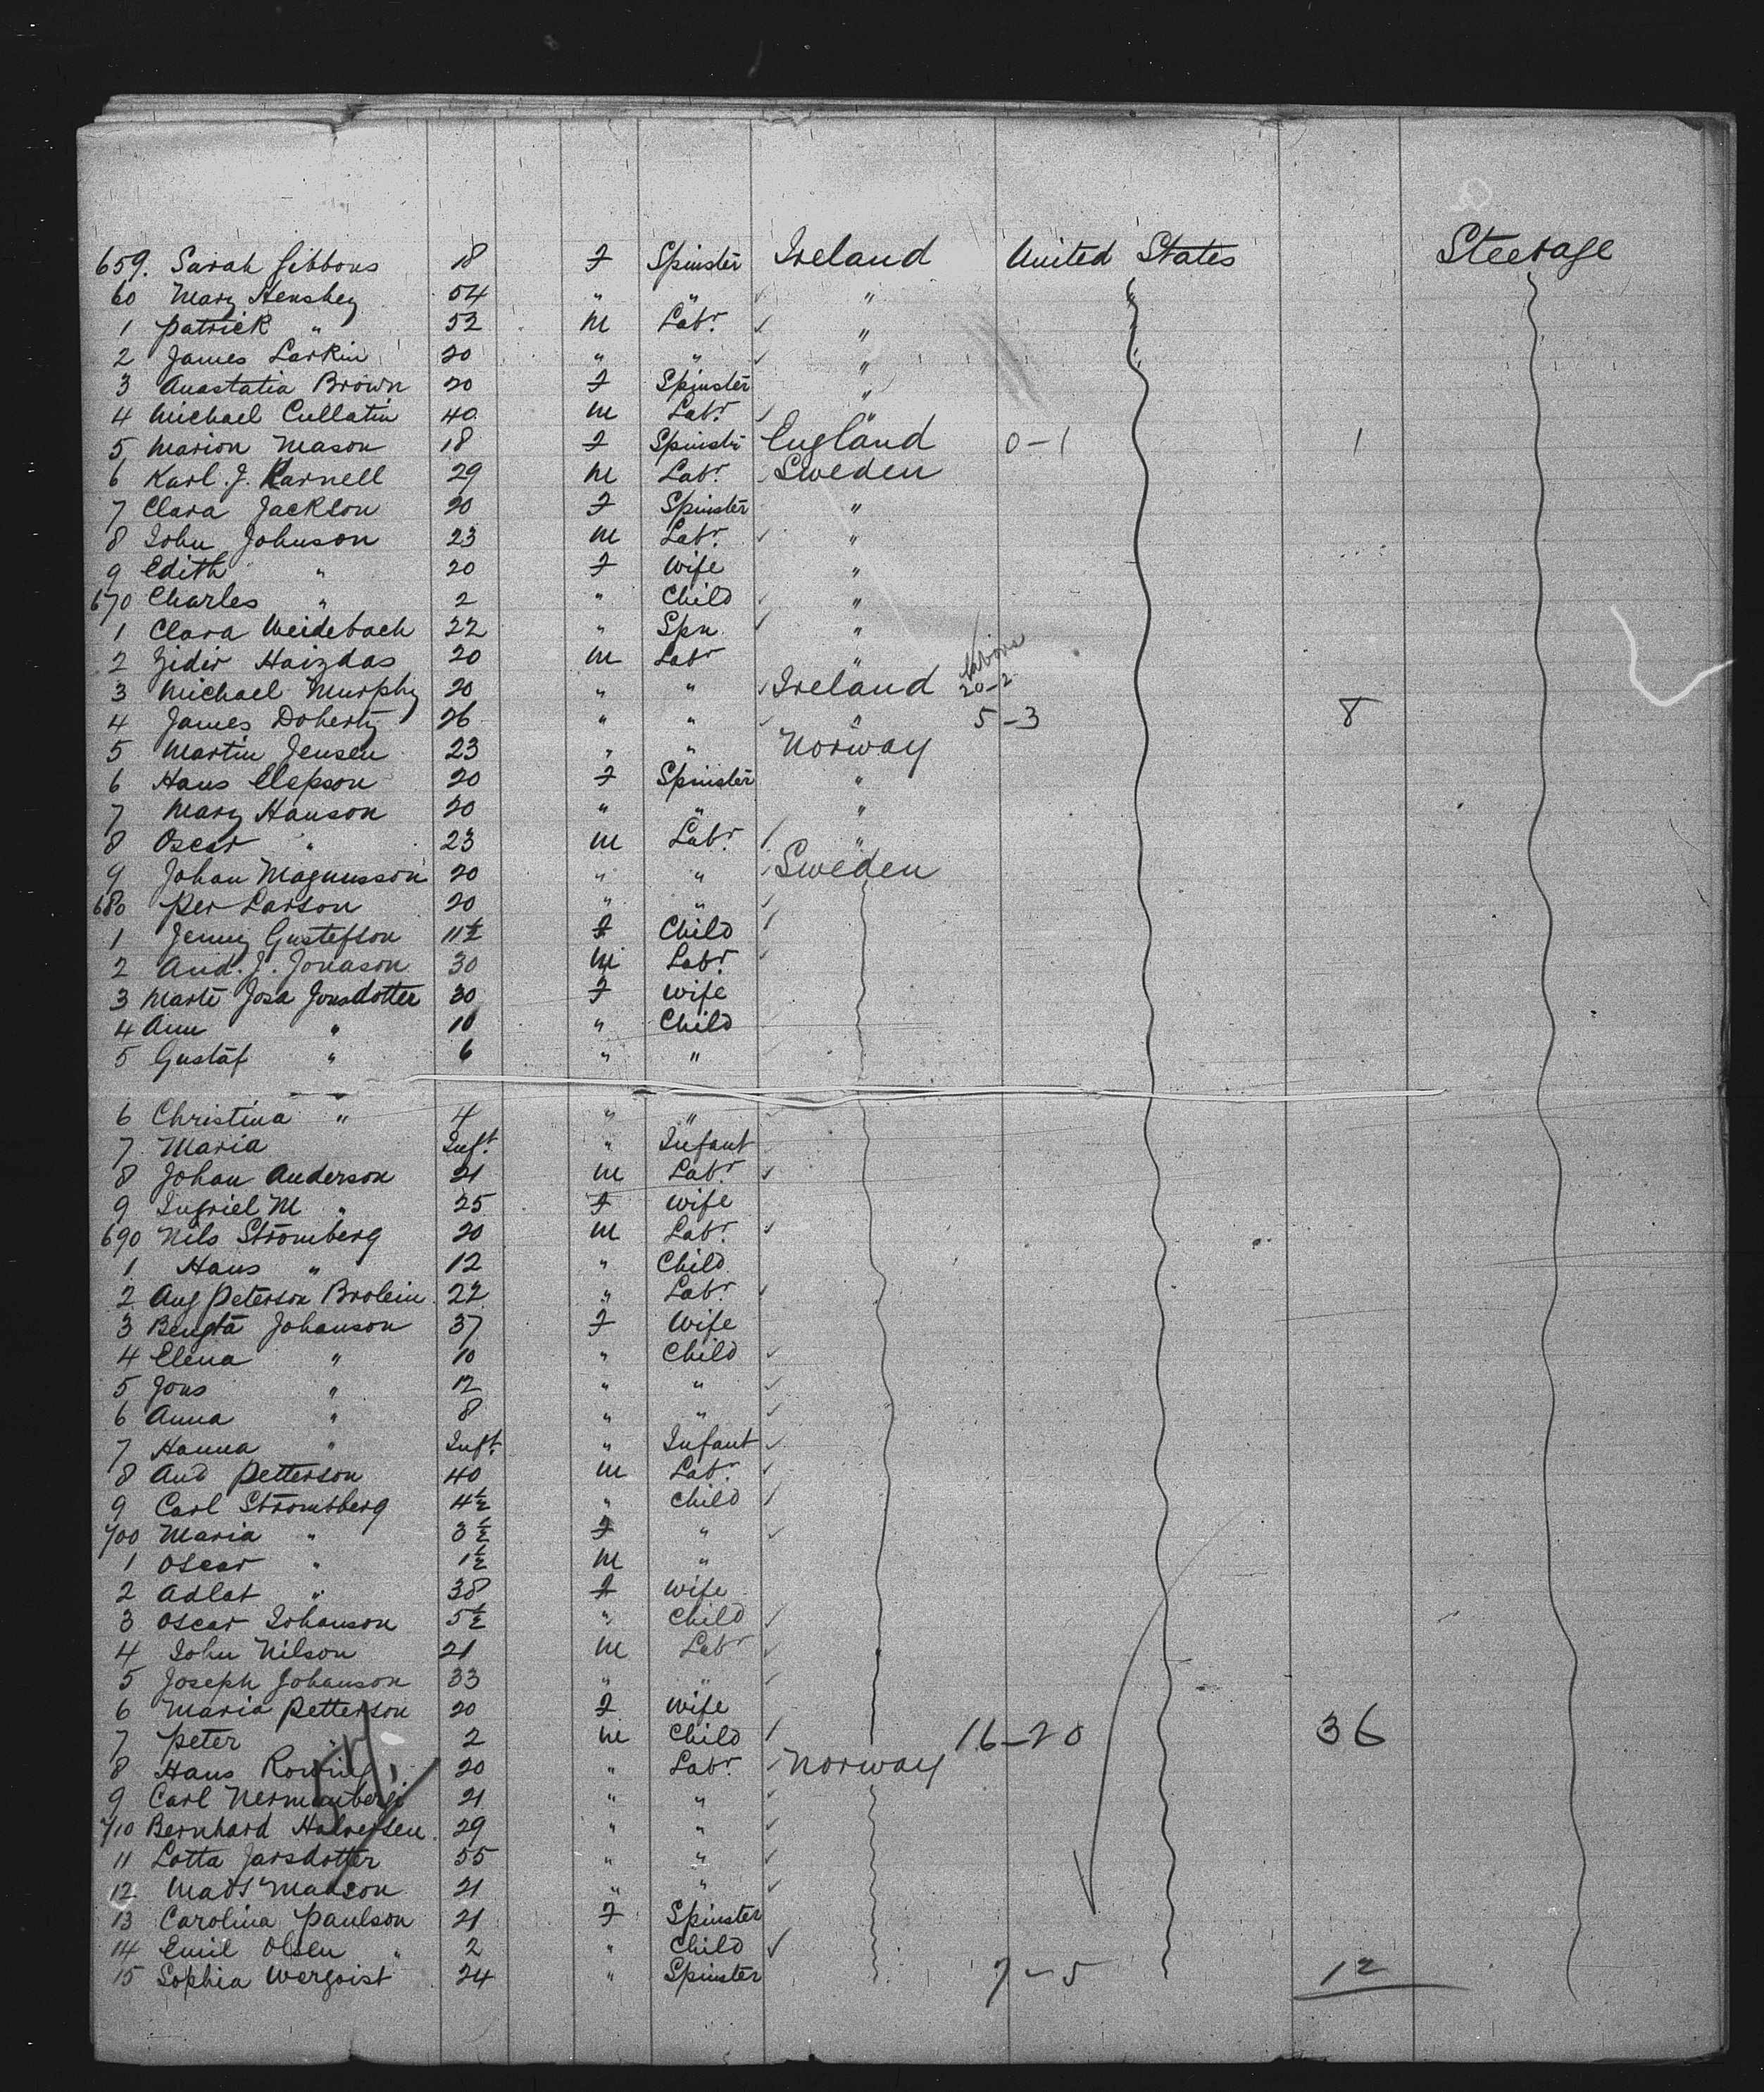 659. Sarah Gibbons 18 F Spinster Ireland United States Steerage
60 Mary Henshey 54 " " "
1 Patrick " 52 M Labr. "
2 James Larkin 20 " " "
3 Anastatia Brown 20 F Spinster "
4 Michael Cullatin 40 M Labr. "
5 Marion Mason 18 F Spinstr England 0-1 1
6 Karl. J. Karnell 29 M Labr. Sweden
7 Clara Jackson 20 F Spinster "
8 John Johnson 23 M Labr. "
9 Edith " 20 F Wife "
670 Charles " 2 " Child "
1 Clara Weidebach 22 " Spn "
2 Zidir Haizdas 20 M Labr "
3 Michael Murphy 20 " " Ireland 20-2
4 James Doherty 26 " " " 5-3 8
5 Martin Jensen 23 " " Norway
6 Hans Elepson 20 F Spinster "
7 Mary Hanson 20 " " "
8 Oscar " 23 M Labr. "
9 Johan Magnusson 20 " " Sweden
680 Per Larson 20 " "
1 Jenny Gustefson 11½ F Child
2 And. J. Jonason 30 M Labr.
3 Marte Josa Jonsdotter 30 F Wife
4 Ann " 10 " Child
5 Gustaf " 6 " "
6 Christina " 4 " "
7 Maria Inft. " Infant
8 Johan Anderson 21 M Labr.
9 Ingriel M " 25 F Wife
690 Nils Stromberg 20 M Labr.
1 Hans " 12 " Child
2 Aug Peterson Brolein 22 " Labr.
3 Bengta Johanson 37 F Wife
4 Elena " 10 " Child
5 Jons " 12 " "
6 Anna " 8 " "
7 Hanna " Inft. " Infant
8 And Petterson 40 M Labr.
9 Carl Strombberg 4½ " Child
700 Maria " 3½ F "
1 Oscar " 1½ M "
2 Adlat " 38 F Wife
3 Oscar Johanson 5½ " Child
4 John Nilson 21 M Labr
5 Joseph Johanson 33 " "
6 Maria Petterson 20 F Wife
7 Peter " 2 M Child 16-20 36
8 Hans 20 " Labr. Norway
9 Carl 21 " "
710 Bernhard Halversen 29 " "
11 Lotta Jarsdotter 55 " "
12 Mads Madson 21 " "
13 Carolina Paulson 21 F Spinster
14 Emil Olsen " 2 " Child
15 Sophia Wergoist 24 " Spinster 7-5 12